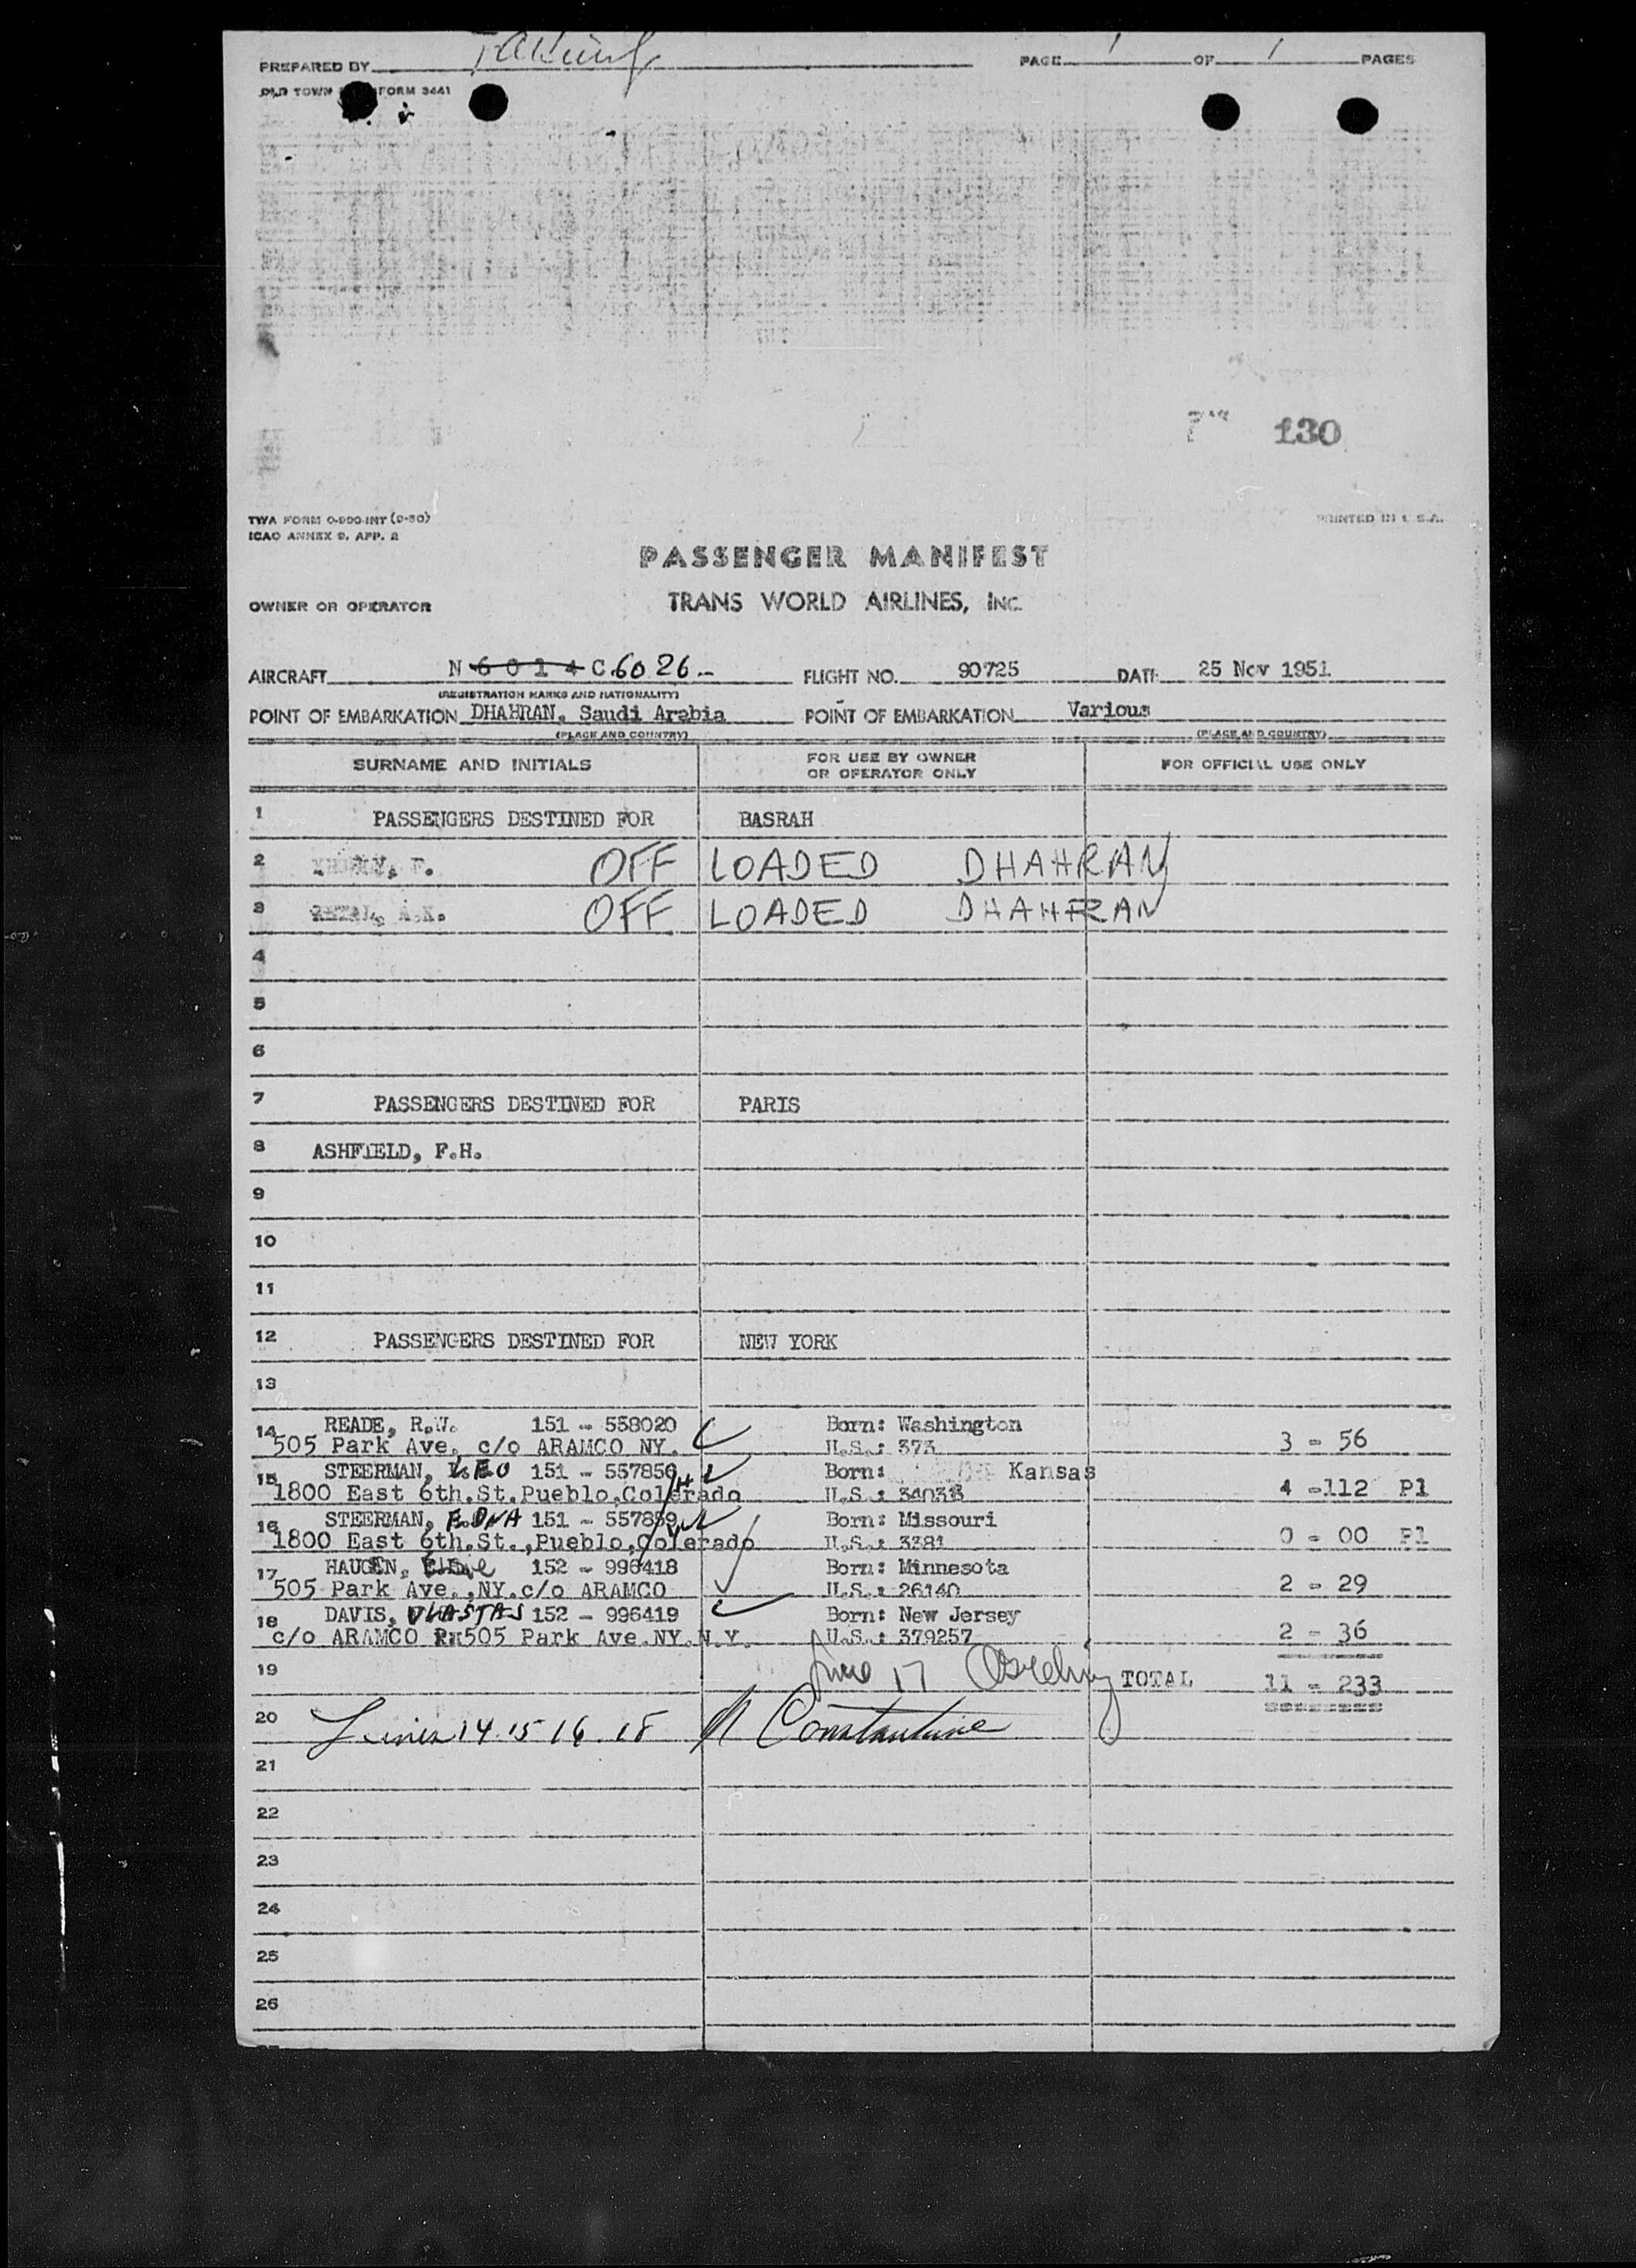 PREPARED BY
PAGE 1 OF 1 PAGES
OLD TOWN FORM 3441
130
TWA FORM O-900-INT (9-50)
PRINTED IN U.S.A.
ICAO ANNEX 9. APP. 2
PASSENGER MANIFEST
OWNER OR OPERATOR TRANS WORLD AIRLINES, INC.
AIRCRAFT N 6 0 1 4 C 6026 FLIGHT NO. 90725 DATE 25 Nov 1951
(REGISTRATION MARKS AND NATIONALITY)
POINT OF EMBARKATION DHAHRAN, Saudi Arabia POINT OF EMBARKATION Various
(PLACE AND COUNTRY) (PLACE AND COUNTRY)
SURNAME AND INITIALS FOR USE BY OWNER OR OPERATOR ONLY FOR OFFICIAL USE ONLY
1 PASSENGERS DESTINED FOR BASRAH
2 OFF LOADED DHAHRAN
3 OFF LOADED DHAHRAN
4
5
6
7 PASSENGERS DESTINED FOR PARIS
8 ASHFIELD, F.H.
9
10
11
12 PASSENGERS DESTINED FOR NEW YORK
13
14 READE, R.W. 151 - 558020 Born: Washington
505 Park Ave. c/o ARAMCO NY. U.S.: 373 3 - 56
15 STEERMAN, LEO 151 - 557856 Born: Kansas
1800 East 6th.St.Pueblo,Colorado U.S.: 4 -112 Pl
16 STEERMAN, EDNA 151 - 557859 Born: Missouri
1800 East 6th.St.,Pueblo,Colerado U.S.: 3381 0 - 00 Pl
17 HAUGEN, 152 - 996418 Born: Minnesota
505 Park Ave.,NY.c/o ARAMCO U.S.: 26140 2 - 29
18 DAVIS, VLASTAS 152 - 996419 Born: New Jersey
c/o ARAMCO 505 Park Ave.NY.N.Y. U.S.: 379257 2 - 36
19 Line 17 TOTAL 11 - 233
20 Lines 14 15 16 18 Constantine
21
22
23
24
25
26